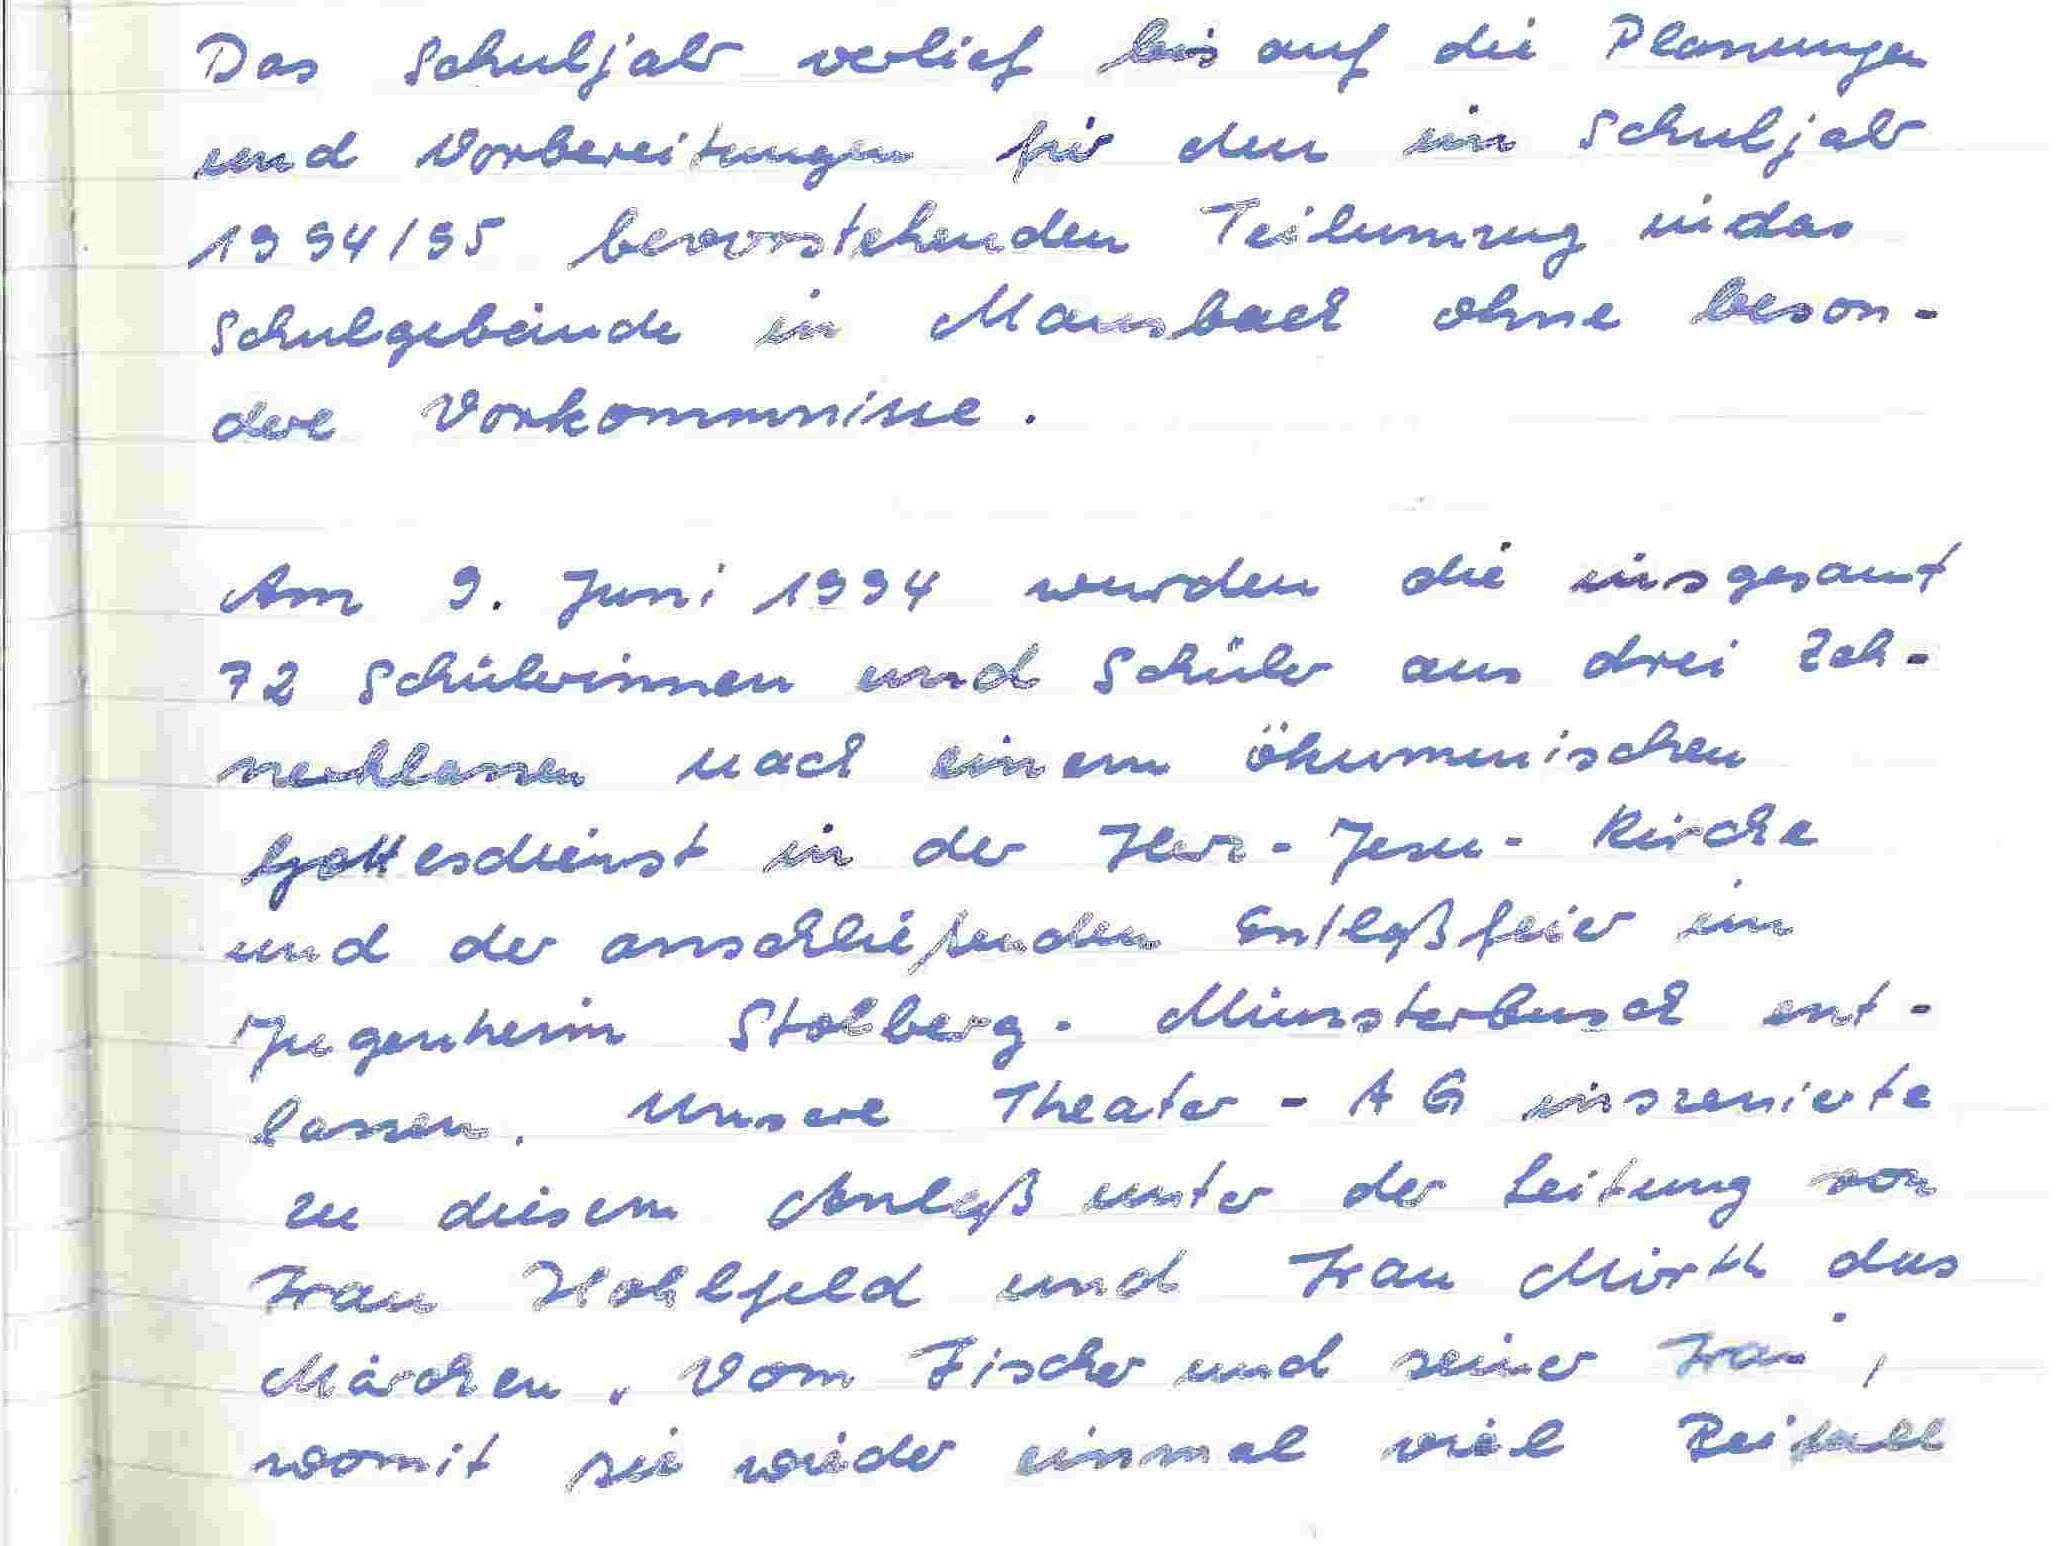 Das Schuljahr verlief bis auf die Planungen
und Vorbereitungen für den im Schuljahr
1994/95 bevorstehenden Teilumzug in das
Schulgebäude in Mausbach ohne beson-
dere Vorkommnisse.
Am 9. Juni 1994 wurden die insgesamt
72 Schülerinnen und Schüler aus drei Zeh-
nerklassen nach einem ökumenischen
Gottesdienst in der Herz-Jesu-Kirche
und der anschließenden Entlaßfeier im
Jugenheim Stolberg-Münsterbusch ent-
lassen. Unsere Theater-AG inszenierte
zu diesem Anlaß unter der Leitung von
Frau Hohlfeld und Frau Mörth das
Märchen "Vom Fischer und seiner Frau",
womit sie wieder einmal viel Beifall